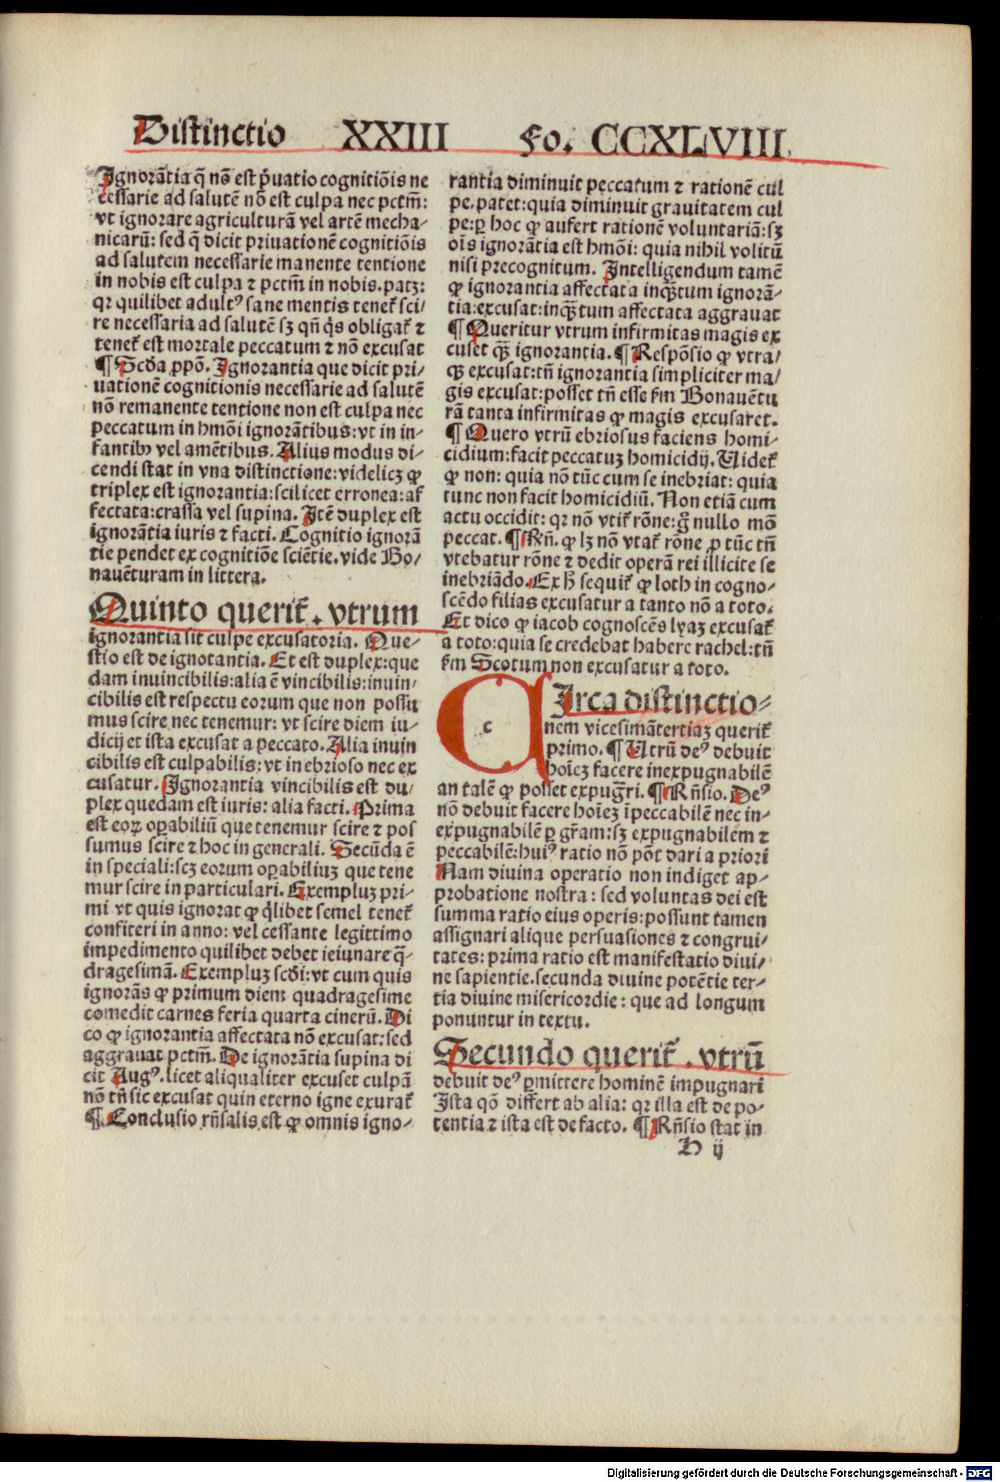 Distinctio XXIII Fo. CCXLVIII.
Ignorãtia q̃ nõ est p̃uatio cognitiõis ne
cessarie ad salutẽ nõ est culpa nec pctm̃:
vt ignorare agriculturã vel artẽ mecha-
nicarũ: sed q̃ dicit priuationẽ cognitiõis
ad salutem necessarie manente tentione
in nobis est culpa ⁊ pctm̃ in nobis. patꝫ:
qr quilibet adultꝰ sane mentis tenet᷑ sci/
re necessaria ad salutẽ sꝫ qñ q̃s obligat᷑ ⁊
tenet᷑ est mortale peccatum ⁊ nõ excusat
¶ Scd̃a ꝓpõ. Ignorantia que dicit pri/
uationẽ cognitionis necessarie ad salutẽ
nõ remanente tentione non est culpa nec
peccatum in hmõi ignorãtibus: vt in in-
fantibꝰ vel amẽtibus. Alius modus di-
cendi stat in vna distinctione: videlicꝫ ꝙ
triplex est ignorantia: scilicet erronea: af
fectata: crassa vel supina. Itẽ duplex est
ignorãtia iuris ⁊ facti. Cognitio ignorã
tie pendet ex cognitiõe sciẽtie. vide Bo/
nauẽturam in littera.
Quinto querit᷑. vtrum
ignorantia sit culpe excusatoria. Que-
stio est de ignotantia. Et est duplex: que
dam inuincibilis: alia ẽ vincibilis: inuin/
cibilis est respectu eorum que non possu
mus scire nec tenemur: vt scire diem iu-
dicij et ista excusat a peccato. Alia inuin
cibilis est culpabilis: vt in ebrioso nec ex
cusatur. Ignorantia vincibilis est du/
plex quedam est iuris: alia facti. Prima
est eoꝝ oꝑabiliũ que tenemur scire ⁊ pos
sumus scire ⁊ hoc in generali. Secũda ẽ
in speciali: scꝫ eorum oꝑabiliuꝫ que tene
mur scire in particulari. Exempluꝫ pri-
mi vt quis ignorat ꝙ q̃libet semel tenet᷑
confiteri in anno: vel cessante legittimo
impedimento quilibet debet ieiunare q̃-
dragesimã. Exempluꝫ scd̃i: vt cum quis
ignorãs ꝙ primum diem quadragesime
comedit carnes feria quarta cinerũ. Di
co ꝙ ignorantia affectata nõ excusat: sed
aggrauat pctm̃. De ignorãtia supina di
cit Augꝰ. licet aliqualiter excuset culpã
nõ tñ sic excusat quin eterno igne exurat᷑
¶ Conclusio rñsalis est ꝙ omnis igno-
rantia diminuit peccatum ⁊ rationẽ cul
pe. patet: quia diminuit grauitatem cul
pe: ꝑ hoc ꝙ aufert rationẽ voluntariã: sꝫ
oĩs ignorãtia est hmõi: quia nihil volitũ
nisi precognitum. Intelligendum tamẽ
ꝙ ignorantia affectata inqᷓ̃tum ignorã-
tia: excusat: inqᷓ̃tum affectata aggrauat
¶ Queritur vtrum infirmitas magis ex
cuset qᷓ̃ ignorantia. ¶ Respõsio ꝙ vtra/
qꝫ excusat: tñ ignorantia simpliciter ma/
gis excusat: posset tñ esse fm Bonauẽtu
rã tanta infirmitas ꝙ magis excusaret.
¶ Quero vtrũ ebriosus faciens homi-
cidium: facit peccatuꝫ homicidij. Videt᷑
ꝙ non: quia nõ tũc cum se inebriat: quia
tunc non facit homicidiũ. Non etiã cum
actu occidit: qr nõ vtit᷑ rõne: g̃ nullo mõ
peccat. ¶ Rñ. ꝙ lꝫ nõ vtat᷑ rõne ꝓ tũc tñ
vtebatur rõne ⁊ dedit operã rei illicite se
inebriãdo. Ex h̃ sequit᷑ ꝙ loth in cogno-
scẽdo filias excusatur a tanto nõ a toto.
Et dico ꝙ iacob cognoscẽs lyaꝫ excusat᷑
a toto: quia se credebat habere rachel: tñ
fm Scotum non excusatur a toto.
CIrca distinctio-
c
nem vicesimãtertiaꝫ querit᷑
primo. ¶ Vtrũ deꝰ debuit
hoĩeꝫ facere inexpugnabilẽ
an talẽ ꝙ posset expug̃ri. ¶ Rñsio. Deꝰ
nõ debuit facere hoĩeꝫ ĩpeccabilẽ nec in-
expugnabilẽ ꝑ gr̃am: sꝫ expugnabilem ⁊
peccabilẽ: huiꝰ ratio nõ põt dari a priori
Nam diuina operatio non indiget ap-
probatione nostra: sed voluntas dei est
summa ratio eius operis: possunt tamen
assignari alique persuasiones ⁊ congrui/
tates: prima ratio est manifestatio diui/
ne sapientie. secunda diuine potẽtie ter-
tia diuine misericordie: que ad longum
ponuntur in textu.
Secundo querit᷑. vtrũ
debuit deꝰ ꝑmittere hominẽ impugnari
Ista qõ differt ab alia: qr illa est de po-
tentia ⁊ ista est de facto. ¶ Rñsio stat in
H ij
Digitalisierung gefördert durch die Deutsche Forschungsgemeinschaft - DFG